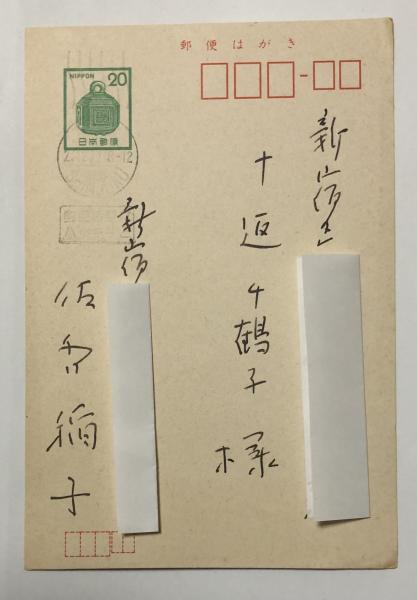 郵便はがき
NIPPON
20
日本郵便
新宿区
十返千鶴子様
新宿
佐多稲子